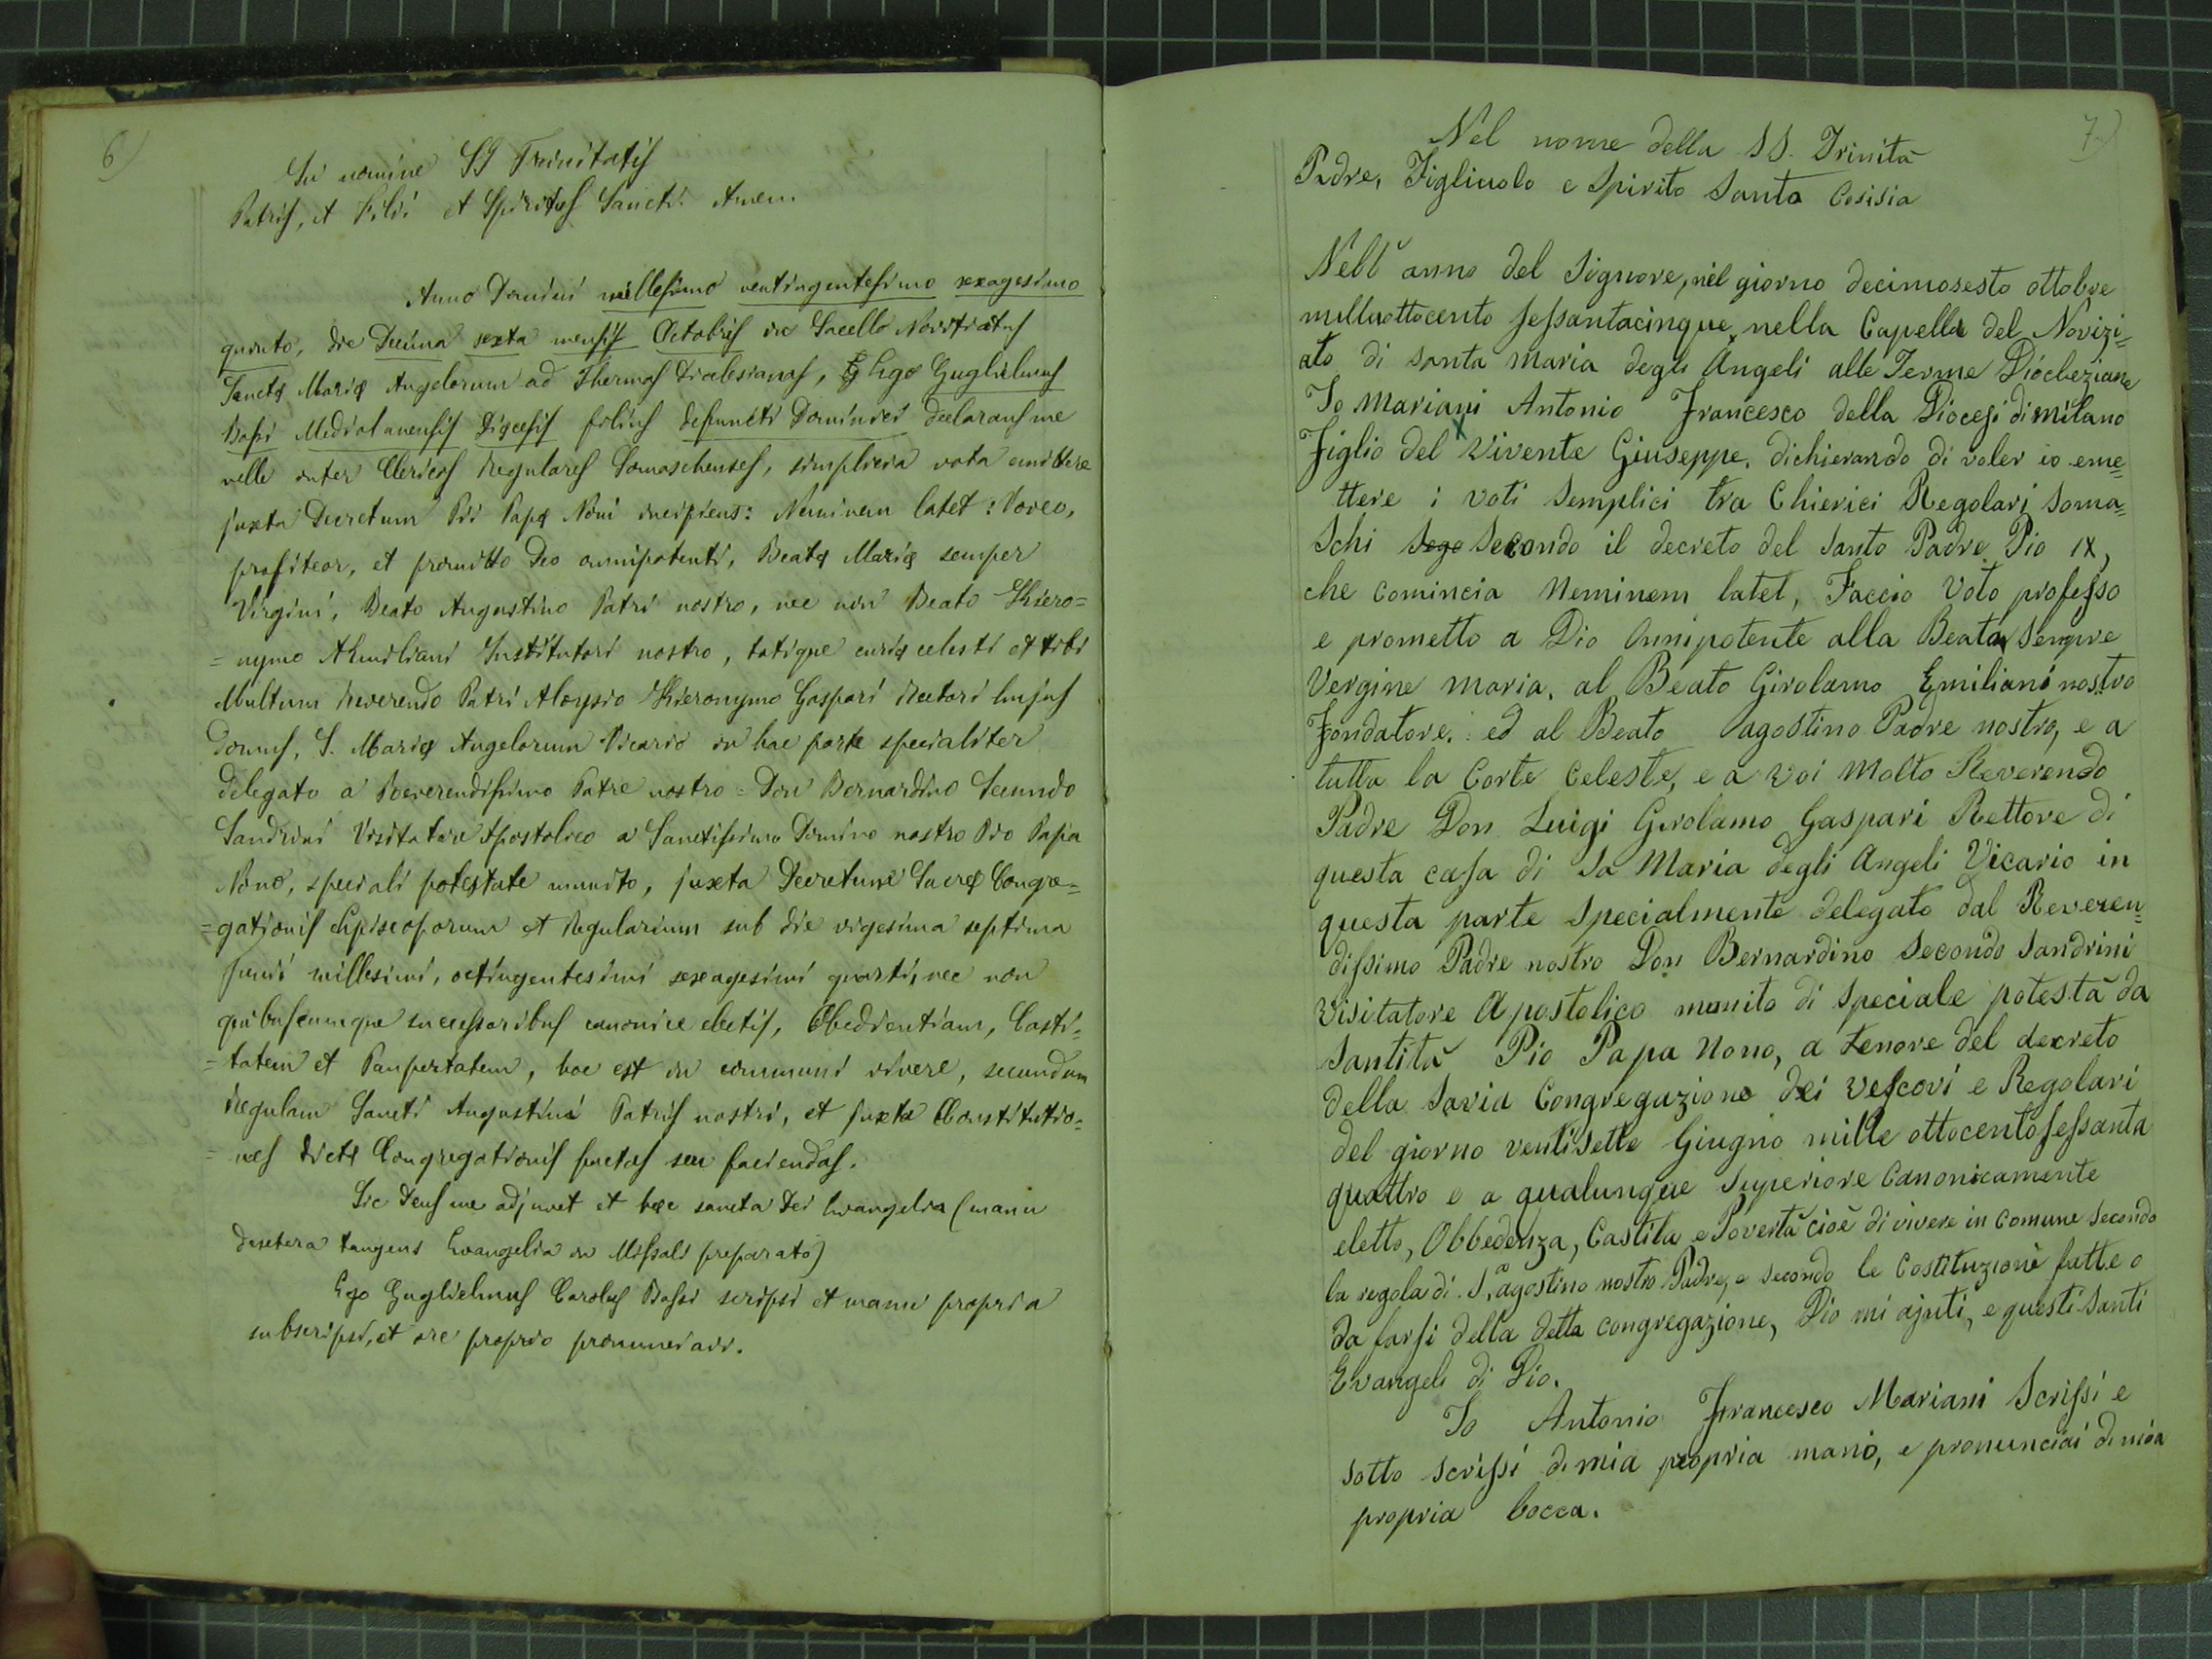 6)
In nomine SS Trinitatis
Patris, et Filii et Spiritus Sancti. Amen.
Anno Domini millesimo centingentesimo sexagesimo
quinto, die Decima sexta mensis Octobris in Sacello Novitiatus
Sanctæ Mariæ Angelorum ad Thermas Dioclesianas, Ego Guglielmus
Bassi Mediolanensis Diœcesis filius defuncti Dominici declarans me
velle inter Clericos Regulares Somaschenses, simplicia vota emittere
juxta Decretum Pii Papæ Noni incipiens: Neminem latet: Voveo,
profiteor, et promitto Deo omnipotenti, Beatæ Mariæ semper
Virgini, Beato Augustino Patri nostro, nec non Beato Hiero=
=nymo Æmiliani Institutori nostro, totique curiæ celesti et tibi
Multum Reverendo Patri Aloysio Hieronymo Gaspari Rectori hujus
domus, S. Mariæ Angelorum Vicario in hac parte specialiter
delegato a Reverendissimo Patre nostro = Don Bernardino Secundo
Sandrini Visitatore Apostolico a Sanctissimo Domino nostro Pio Papa
Nono, speciali potestate munito, juxta Decretum Sacræ Congre=
=gationis Episcoporum et Regularium sub die vigesima septima
Junii millesimi, octingentesimi sexagesimi quarti, nec non
quibuscumque successoribus canonice electis, Obedientiam, Casti=
=tatem et Paupertatem, hoc est in communi vivere, secundum
regulam Sancti Augustini Patris nostri, et juxta Constitutio=
=nes dictæ Congregationis factas seu faciendas.
Sic Deus me adjuvet et hæc sancta Dei Evangelia (manu
dexetera tangens Evangelia in Missali preparato)
Ego Guglielmus Carolus Bassi scripsi et manu propria
subscripsi, et ore proprio pronunciavi.
7)
Nel nome della SS. Trinità
Padre, Figliuolo e Spirito Santo Cosisia
Nell' anno del Signore, nel giorno decimosesto ottobre
milleottocento sessantacinque nella Capella del Novizi=
ato di santa maria degli Angeli alle Terme Diocleziane
Io Mariani Antonio Francesco della Diocesi di Milano
x
Figlio del Vivente Giuseppe, dichierando di voler io eme=
ttere i voti semplici tra Chierici Regolari Soma=
Schi Sego Secondo il decreto del Santo Padre Pio IX,
che comincia Neminem latet, Faccio Voto professo
e prometto a Dio Onnipotente alla Beata Sempre
Vergine Maria, al Beato Girolamo Emiliani nostro
Fondatore. ed al Beato agostino Padre nostro, e a
tutta la Corte Celeste, e a Voi Molto Reverendo
Padre Don Luigi Girolamo Gaspari Rettore di
questa casa di Sa Maria degli Angeli Vicario in
questa parte Specialmente delegato dal Reveren=
dissimo Padre nostro Don Bernardino Secondo Sandrini
Visitatore Apostolico munito di Speciale potestà da
Santità Pio Papa Nono, a tenore del decreto
della Savia Congregazione dei Vescovi e Regolari
del giorno ventisette Giugno mille ottocento sessanta
quattro e a qualunque Superiore Canonicamente
eletto, Obbedenza, Castita e Poverta cioè di vivere in Comune Secondo
la regola di S. agostino nostro Padre, e secondo le Costituzioni fatte o
da farsi della detta congregazione, Dio mi ajuti, e questi Santi
Evangeli di Dio.
Io Antonio Francesco Mariani Scrissi e
sotto scrissi di mia propria mano, e pronunciai di mia
propria bocca.